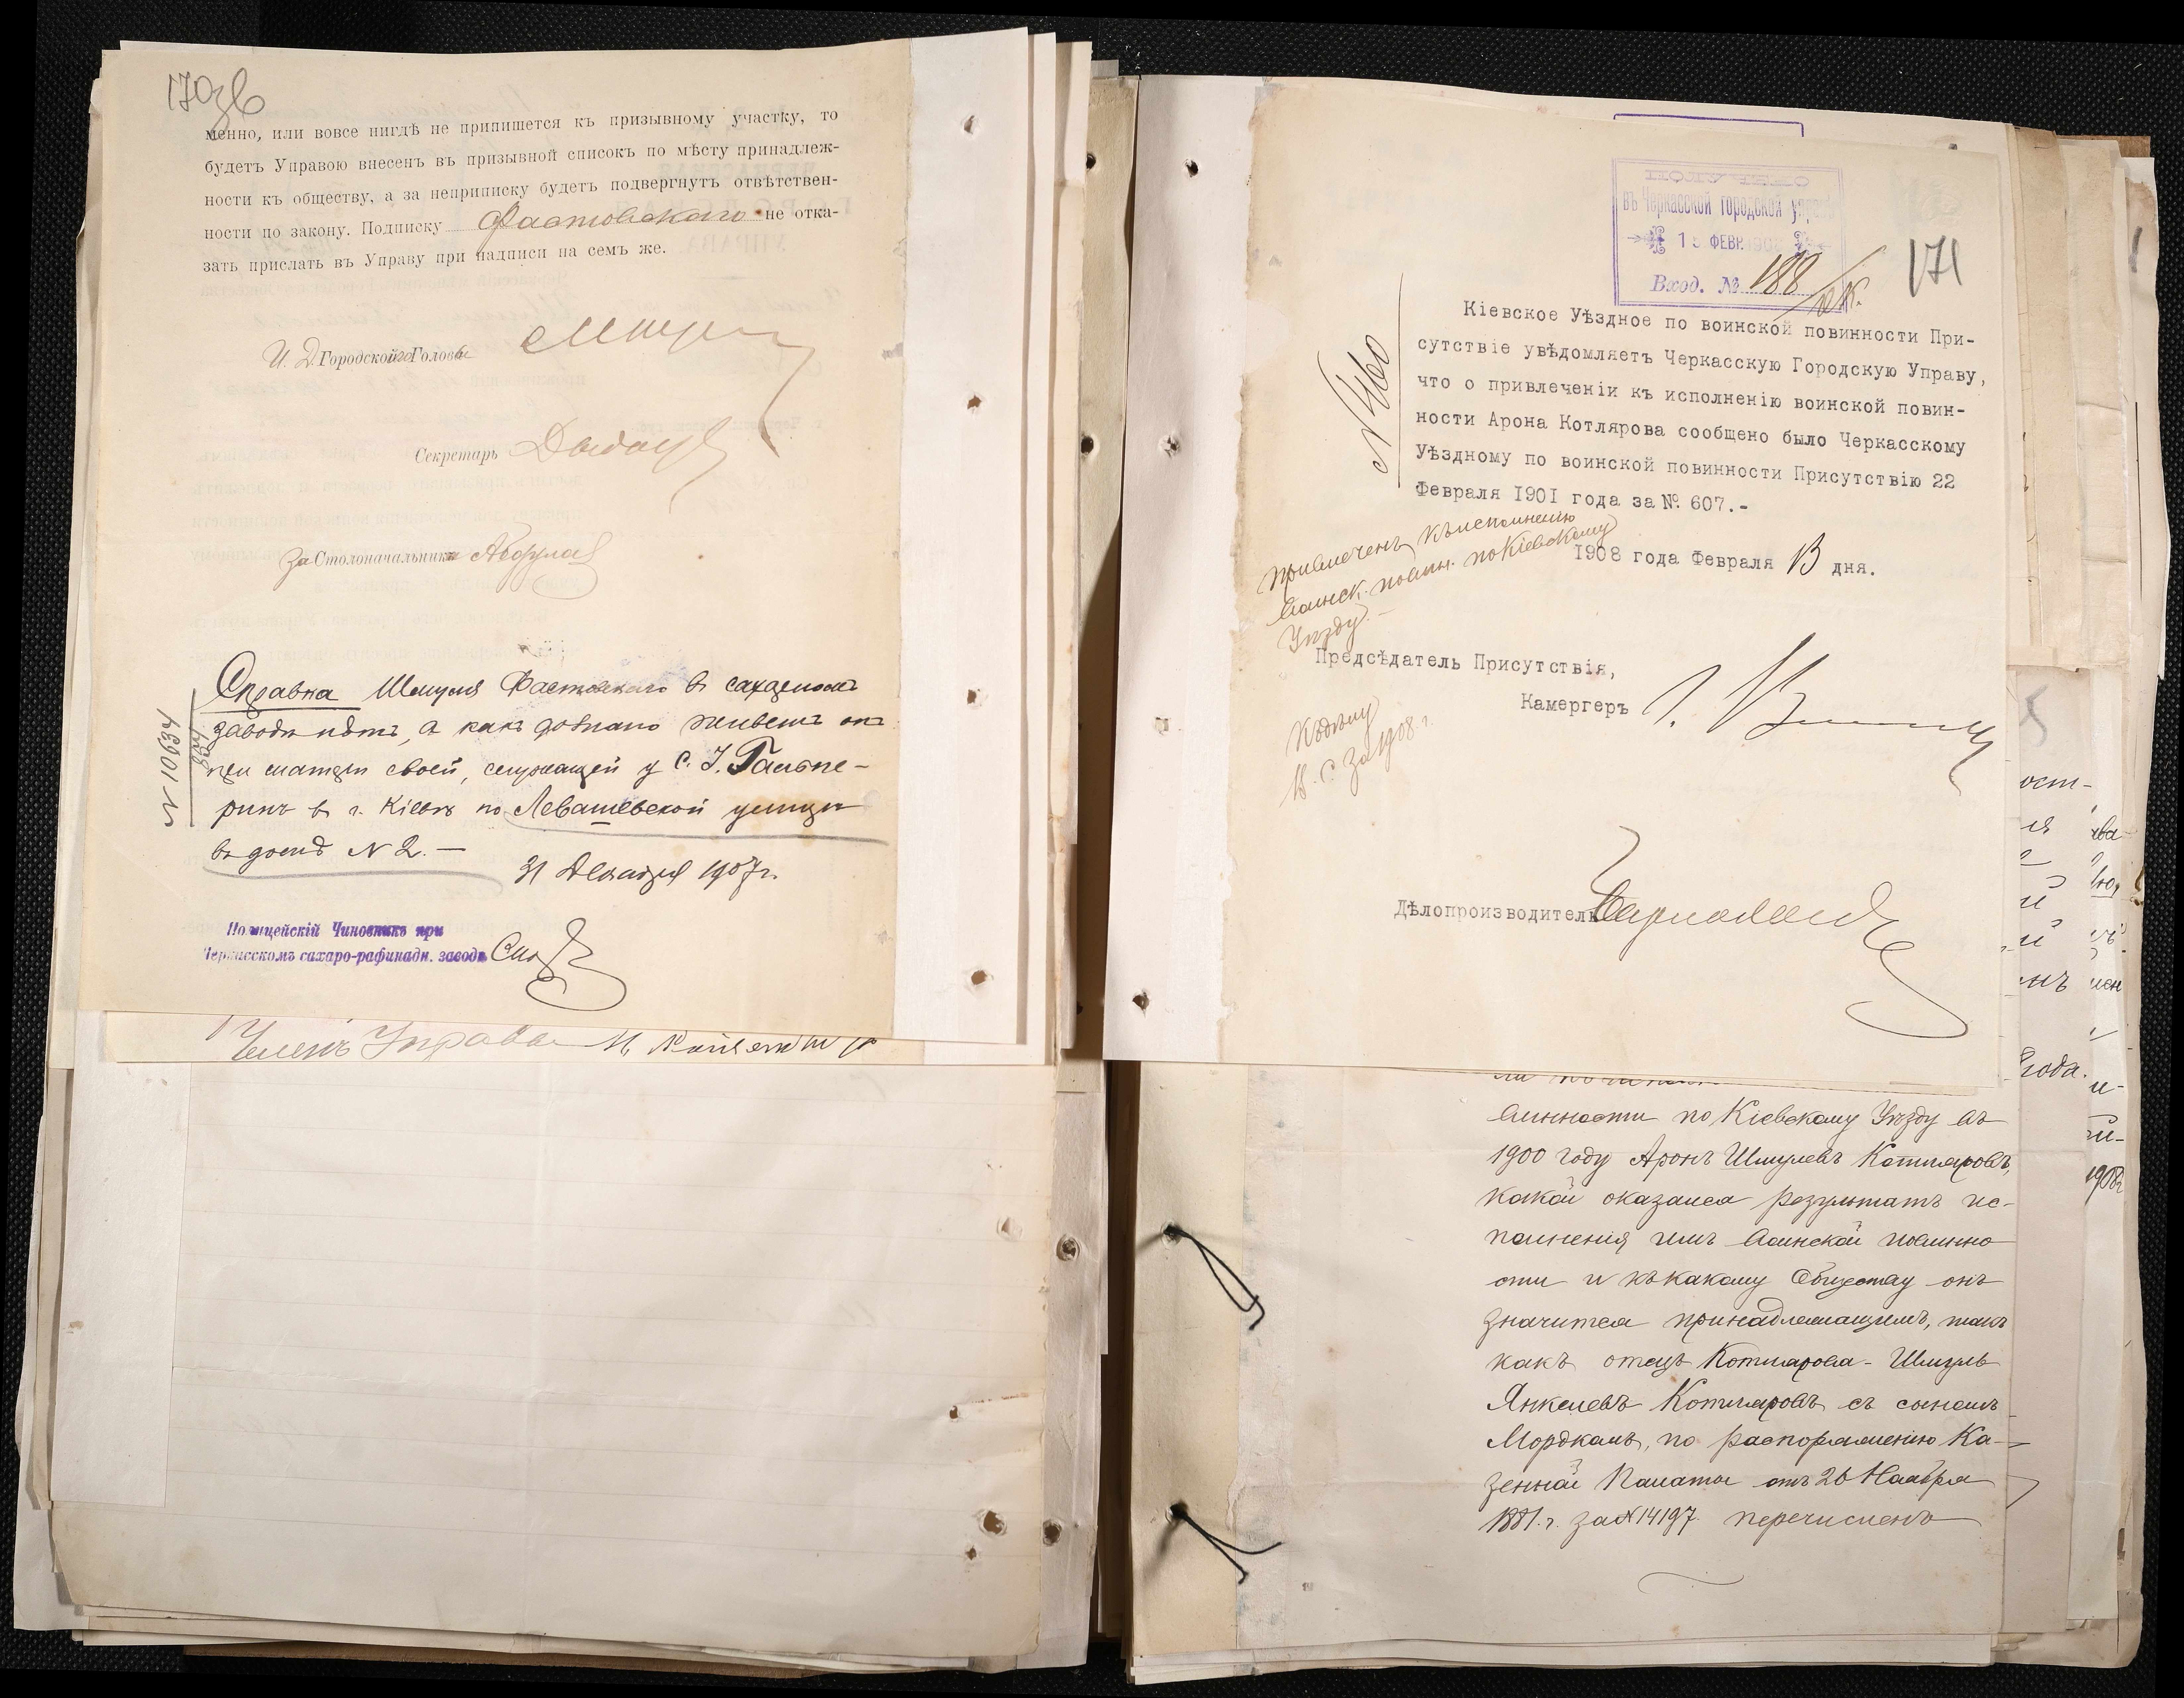 170 зв
менно, или вовсе нигдѣ не припишется къ призывному участку, то
будетъ Управою внесенъ въ призывной списокъ по мѣсту принадлеж-
ности къ обществу, а за неприписку будетъ подвергнутъ отвѣтствен-
ности по закону. Подписку Фастовскаго не отка-
зать прислать въ Управу при надписи на семъ же.
И. Д. Городского Головы
Секретарь
За Столоначальника
Справка Шмуля Фастовскаго въ сахарномъ
заводѣ нѣтъ, а какъ дознано живетъ онъ
при матери своей, служащей у С. І. Гальпе-
ринъ в г. Кіевѣ по Левашевской улицѣ
въ домѣ N 2. —
31 Декабря 1907 г.
N 10634
Полицейскій Чиновникъ при
Черкасскомъ сахаро-рафинадн. заводѣ
Членъ Управы
въ Черкасской городской управѣ
15 ФЕВР. 1908
Вход. № 188
171
N 1160
Кіевское Уѣздное по воинской повинности При-
сутствіе увѣдомляетъ Черкасскую Городскую Управу,
что о привлеченіи къ исполненію воинской повин-
ности Арона Котлярова сообщено было Черкасскому
Уѣздному по воинской повинности Присутствію 22
Февраля 1901 года за № 607.-
Привлеченъ къ исполненію
воинск. повин. по Кіевскому
Уѣзду. —
1908 года Февраля 13 дня.
Предсѣдатель Присутствія,
Камергеръ
Къ дѣлу
В. с. за 1908 г.
Дѣлопроизводитель
винности по Кіевскому Уѣзду въ
1900 году Аронъ Шмулевъ Котляровъ,
какой оказался результатъ ис-
полненія имъ воинской повинно
сти и къ какому Обществу онъ
значится принадлежащимъ, такъ
какъ отецъ Котлярова - Шмуль
Янкелевъ Котляровъ съ сыномъ
Мордкомъ, по распоряженію Ка-
зенной Палаты отъ 26 Ноября
1881 г. за N 14197 перечисленъ
года.
1908 г